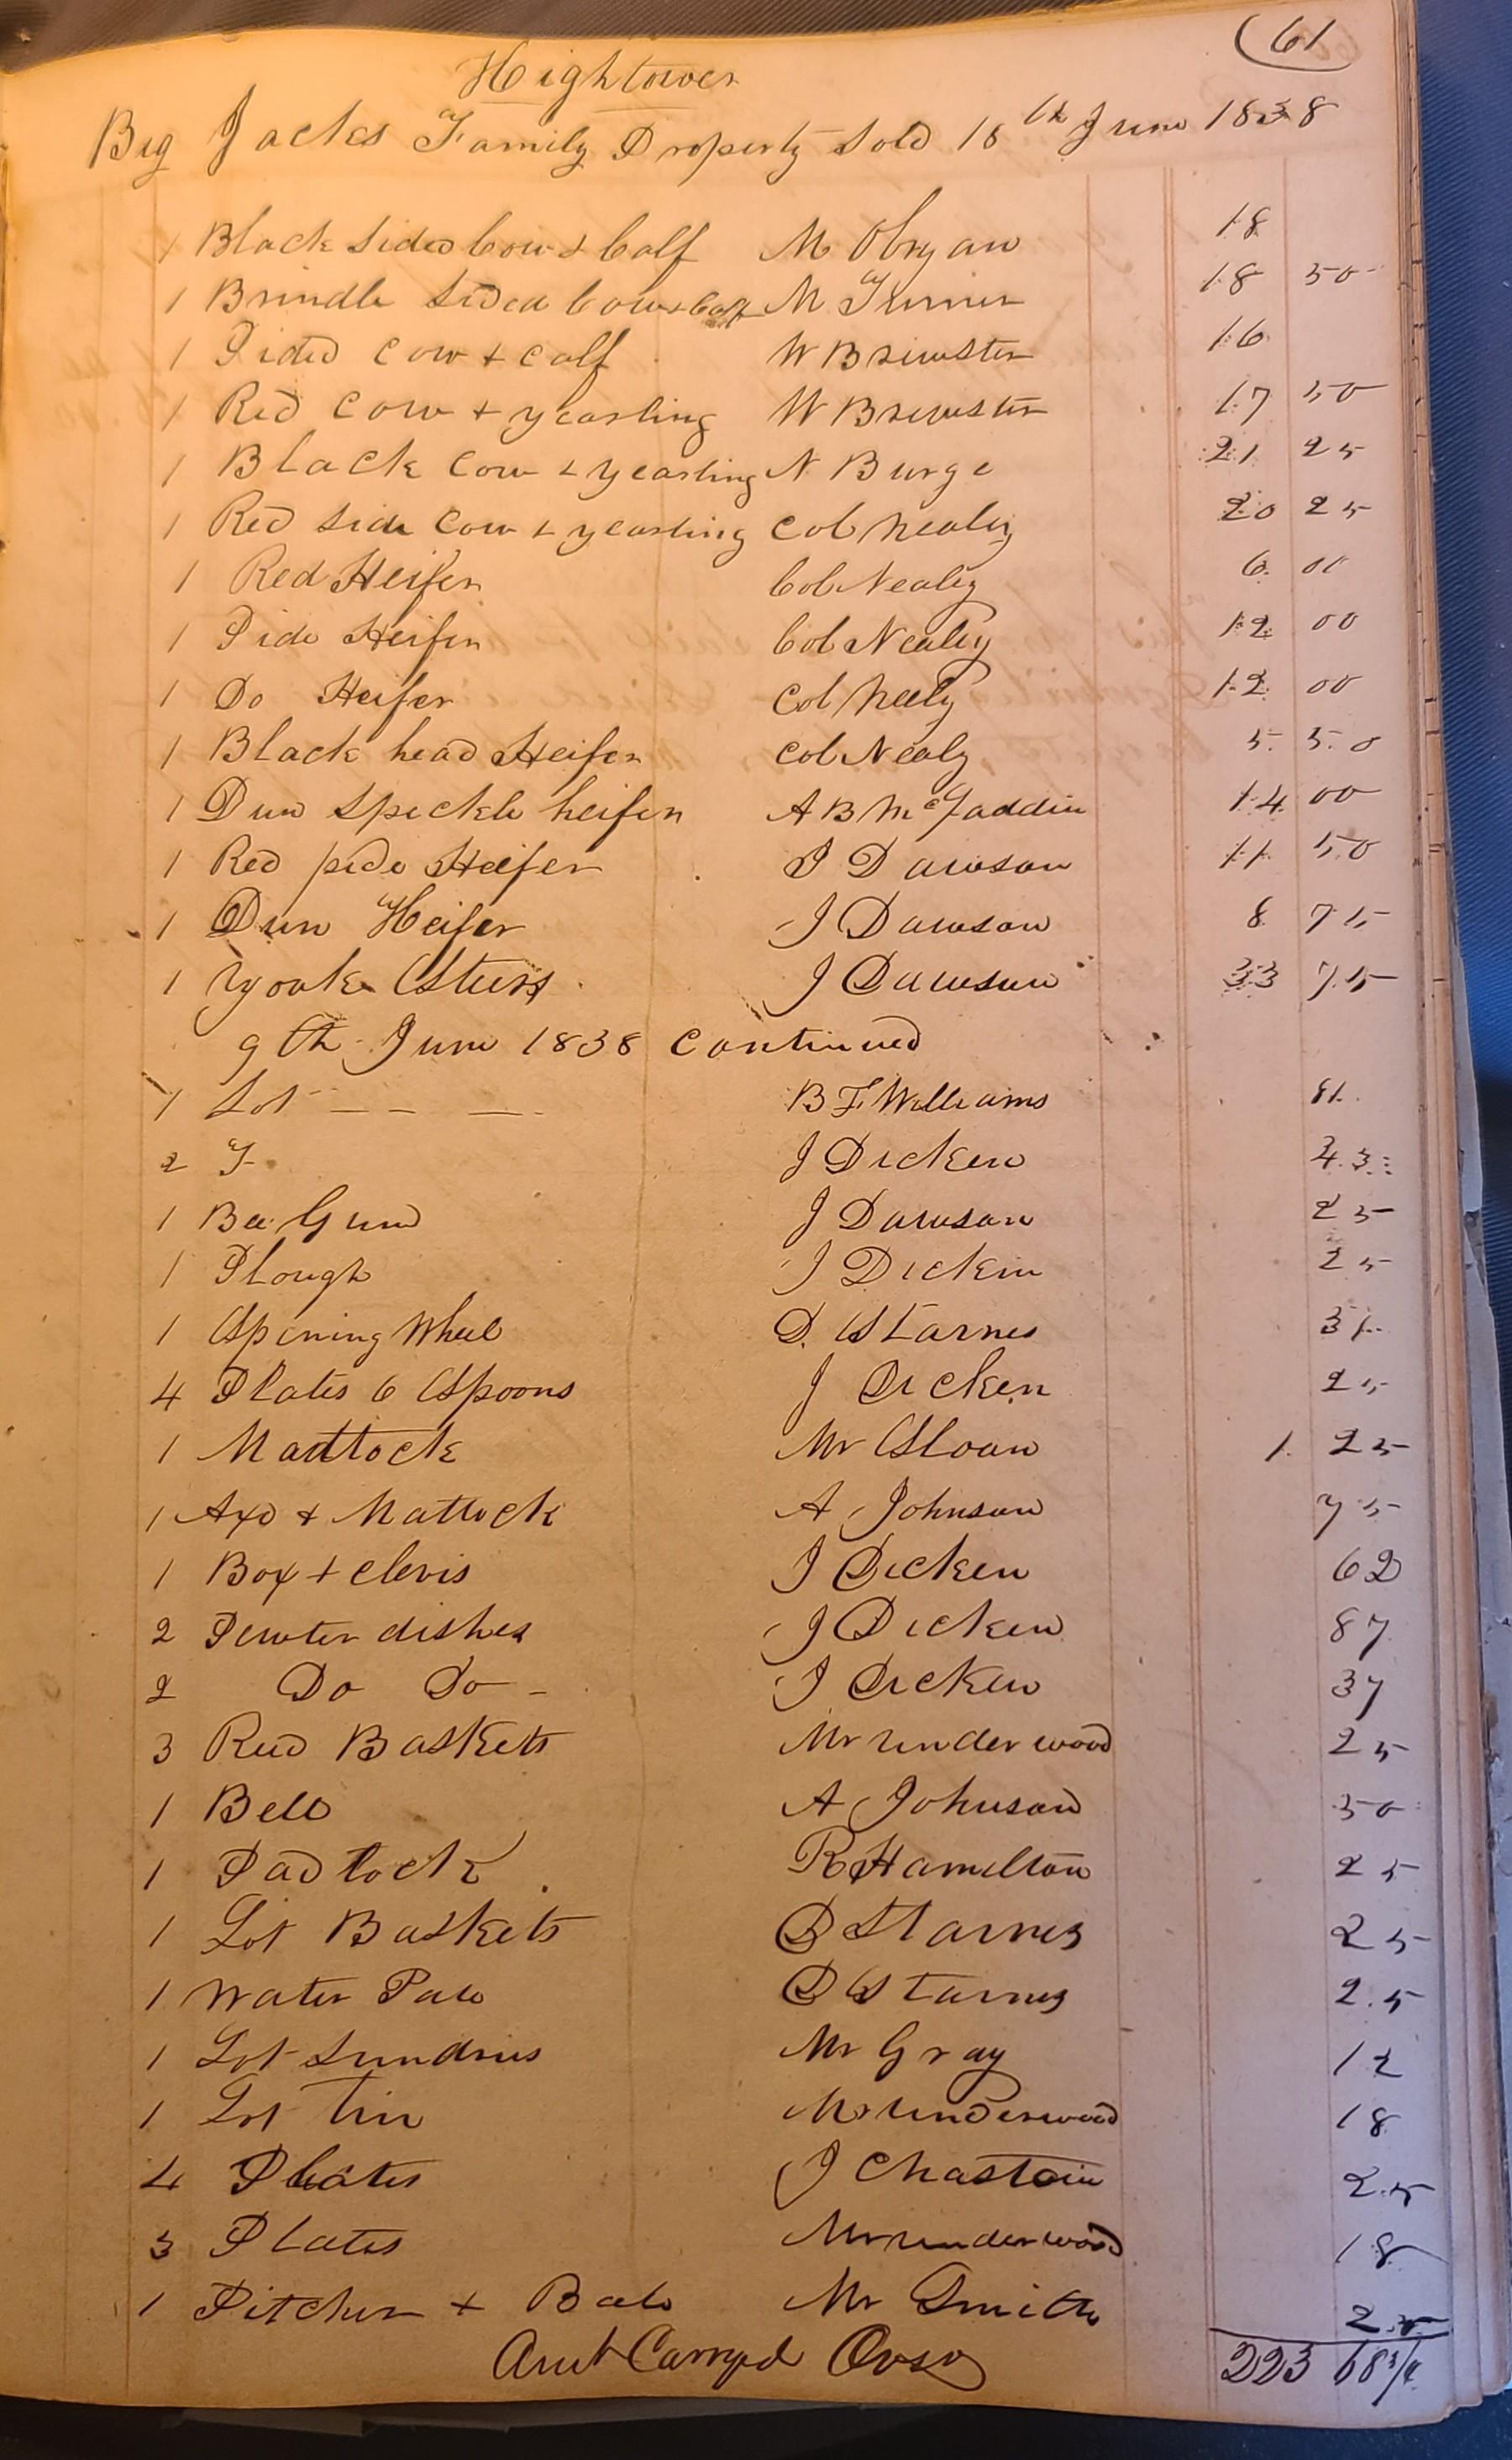 (61
Hightower
Big Jacks Family Property Sold 16th June 1838
1 Black Sided Cow & Calf M Obryan 18
1 Brindle Sided Cow & Calf M Turner 18 50
1 Pided Cow & Calf W Brewster 16
1 Red Cow & yearling W Brewster 17 50
1 Black Cow & yearling N Burge 21 25
1 Red Side Cow & yearling Col Nealey 20 25
1 Red Heifer Col Nealey 6 00
1 Pide Heifer Col Nealey 12 00
1 Do Heifer Col Neely 12 00
1 Black head Heifer Col Nealy 5 50
1 Dun Speckle heifer A B McFaddin 14 00
1 Red pide Heifer J Dawson 11 50
1 Dun Heifer J Dawson 8 75
1 Yoake Steers J Dawson 33 75
9th June 1838 Continued
1 Lot B F Williams 81
2 J Dicken 43
1 Bee Gum J Dawson 25
1 Plough J Dickin 25
1 Spining Wheel D. Starnes 31
4 Plates 6 Spoons J Dicken 25
1 Mattock Mr Sloan 1 25
1 Axe & Mattock A Johnson 75
1 Box & Clevis J Dicken 62
2 Pewter dishes J Dicken 87
2 Do Do J Dicken 37
3 Reed Baskets Mr underwood 25
1 Bell A Johnson 50
1 Padlock R Hamilton 25
1 Lot Baskets D Starnes 25
1 Water Pale D Starnes 25
1 Lot Sundries Mr Gray 12
1 Lot Tin Mr underwood 18
4 Plates J Chastain 25
3 Plates Mr underwood 18
1 Pitcher & Mr Smith 25
Amt Carryed Over 223 68 3/4